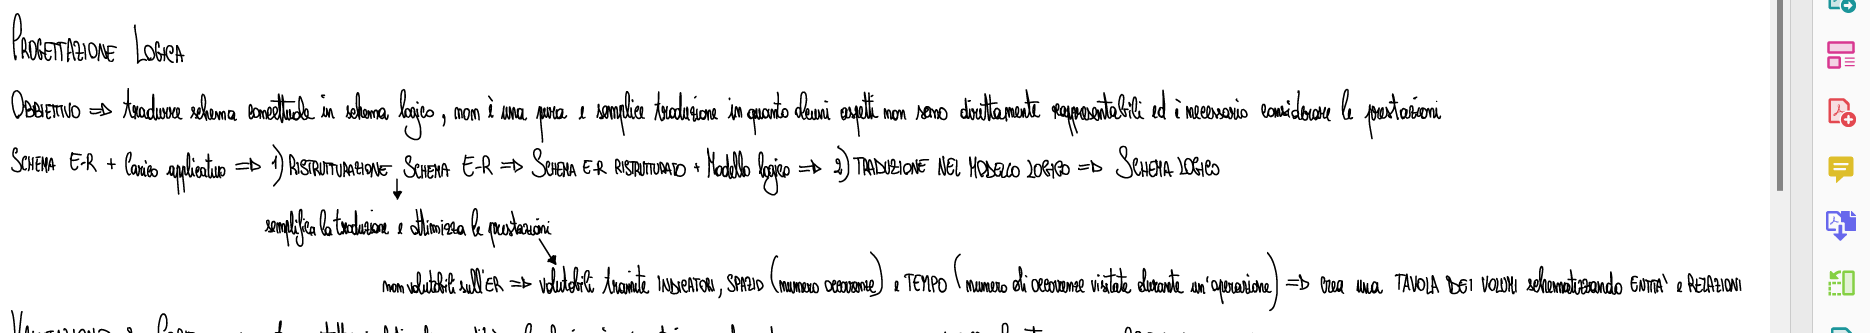 PROGETTAZIONE LOGICA
OBBIETTIVO => tradurre schema concettuale in schema logico, non è una pura e semplice traduzione in quanto alcuni aspetti non sono direttamente rappresentabili ed è necessario considerare le prestazioni
SCHEMA E-R + Carico applicativo => 1) RISTRUTTURAZIONE SCHEMA E-R => SCHEMA E-R RISTRUTTURATO + Modello logico => 2) TRADUZIONE NEL MODELLO LOGICO => SCHEMA LOGICO
semplifica la traduzione e ottimizza le prestazioni
non valutabili sull'ER => valutabili tramite INDICATORI, SPAZIO (numero occorrenze) e TEMPO (numero di occorrenze visitate durante un'operazione) => crea una TAVOLA DEI VOLUMI schematizzando ENTITA' e RELAZIONI